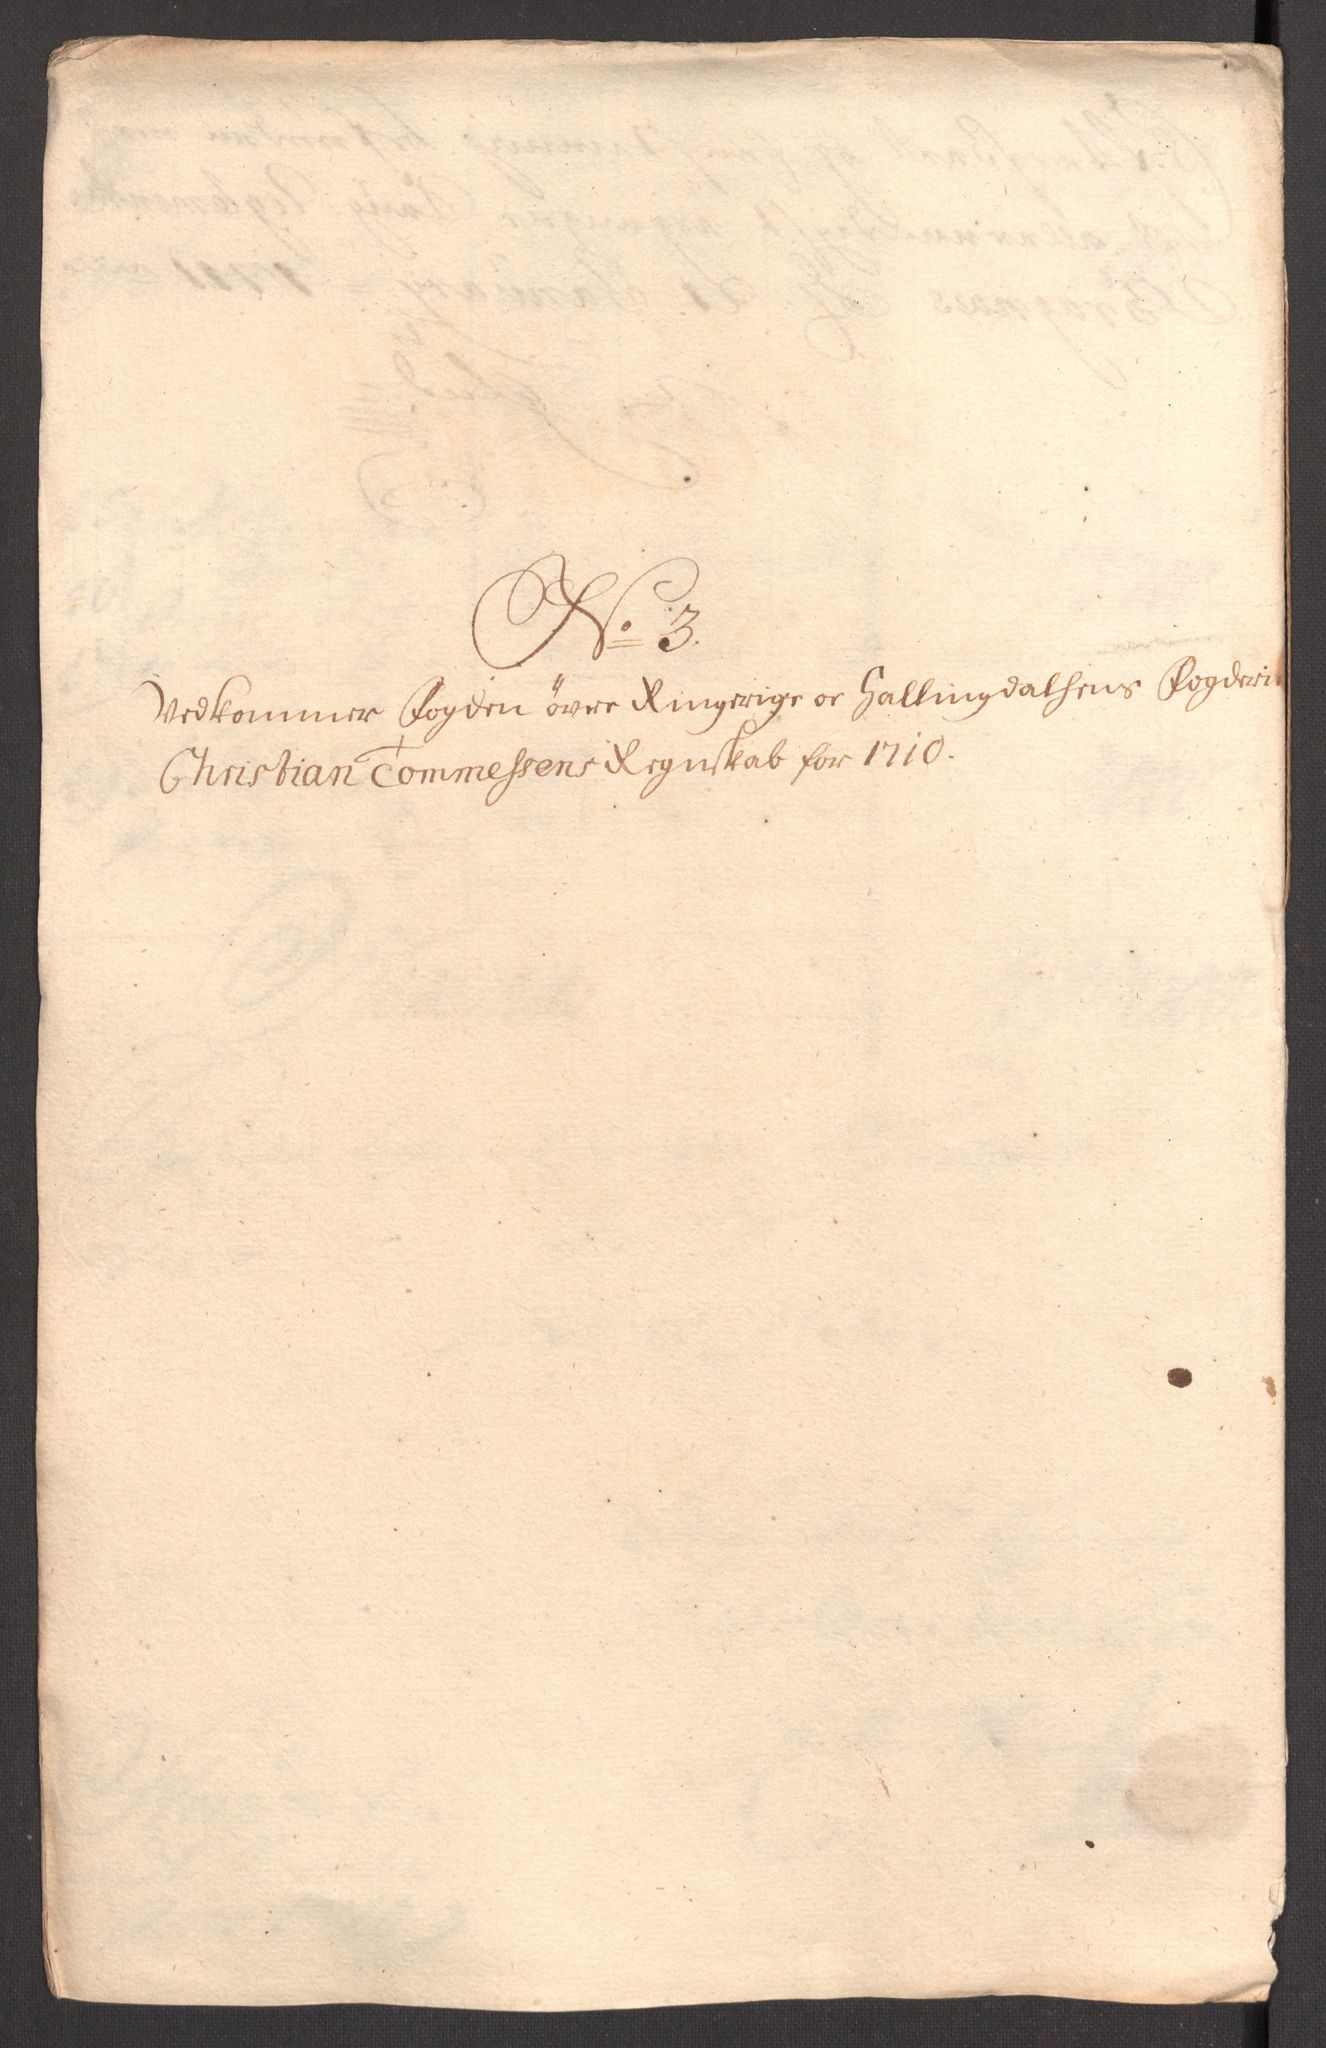 No 3.
Vedkommer Fogden övre Ringerige oc Hallingdalhens Fogderi
Christian Tommessens Regnskab for 1710.